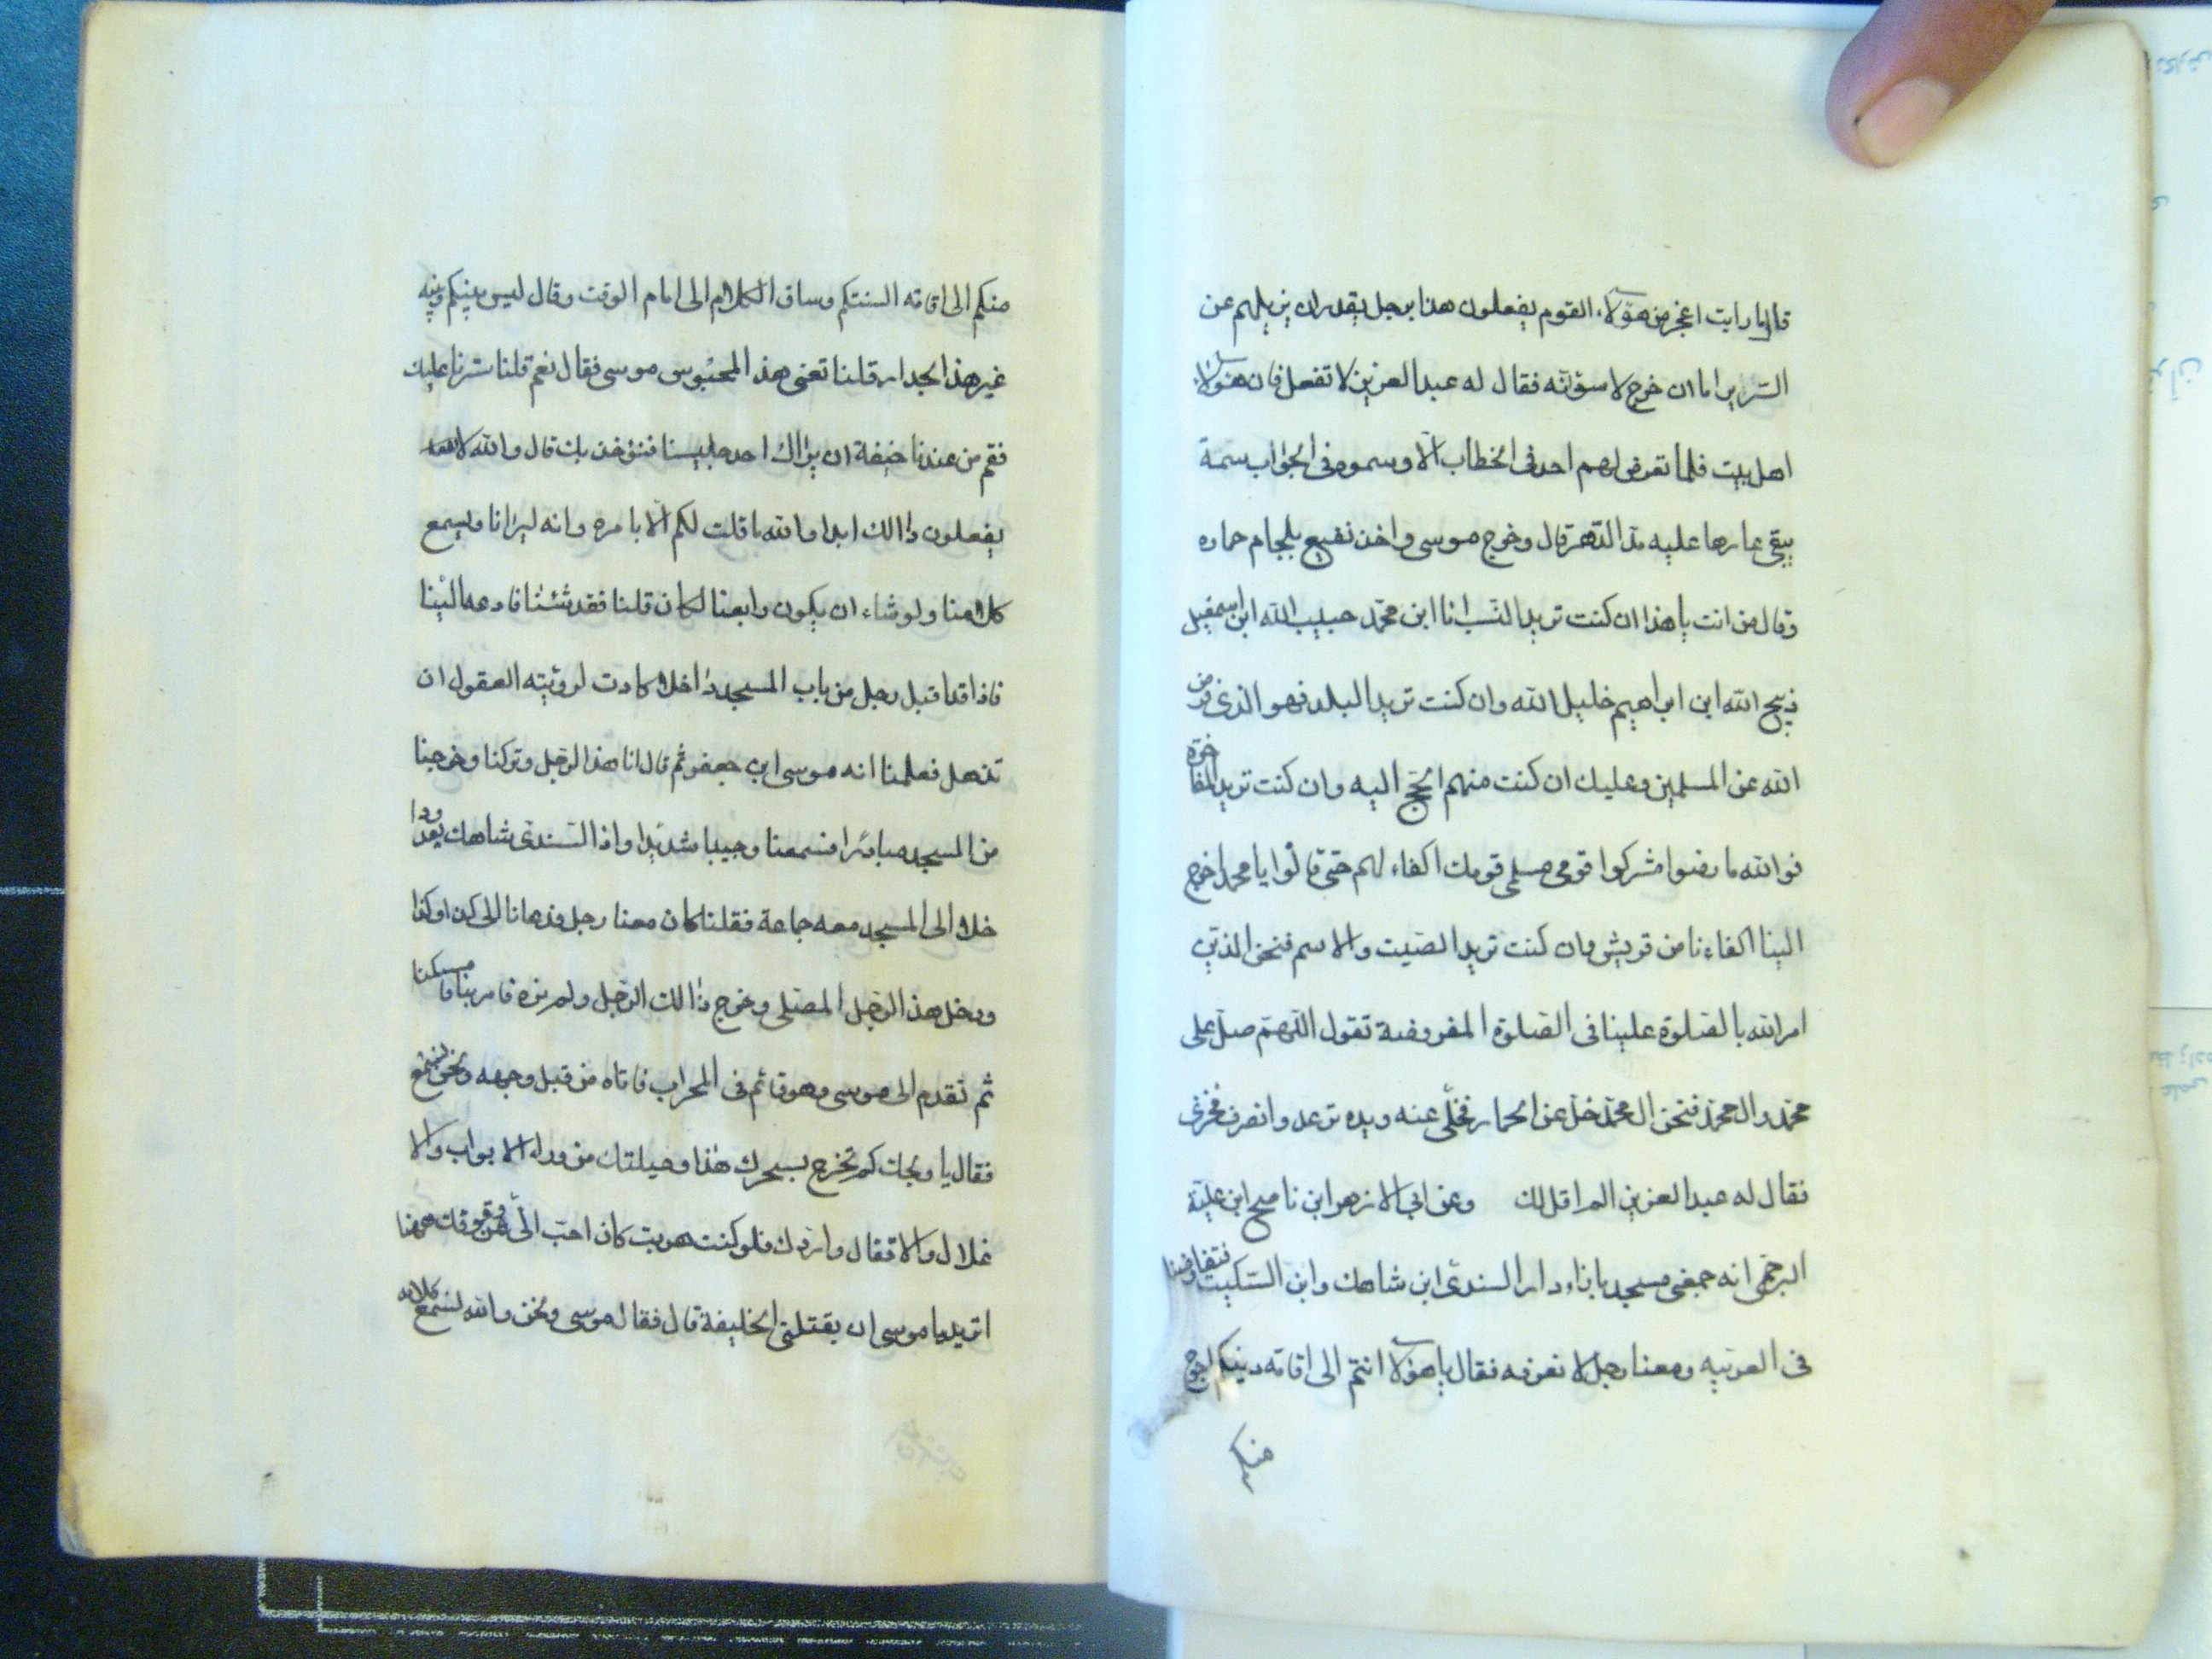 قال ما رايت اعجز من هؤلاء القوم يفعلون هذا برجل يقدر ان يزيلهم عن
السرير اما ان خرج لاسؤنّه فقال له عبد العزيز لا تفعل فان هؤلاء
اهل بيت فلما تعرض لهم احد فى الخطاب الّا وسموه فى الجواب سمة
يبقى عارها عليه مدّ الدّهر قال وخرج موسى واخذ نفيع بلجام حماره
وقال من انت يا هذا ان كنت تريد النسب انا ابن محمّد حبيب الله ابن اسمعيل
ذبيح الله ابن ابراهيم خليل الله وان كنت تريد البلد فهو الذى فرض
الله عن المسلمين وعليك ان كنت منهم الحجّ اليه وان كنت تريد المفاخرة
فوالله ما رضوا مشركوا قومى مسلمى قومك اكفاء لهم حتى قالوا يا محمد اخرج
الينا اكفاءنا من قريش وان كنت تريد الصيت والاسم فنحن الذين
امر الله بالصّلوة علينا فى الصّلوة المفروضة تقول اللّهمّ صلّ على
محمّد وال محمّد فنحن ال محمّد خلّ عن الحمار فخلّى عنه ويده ترعد وانصرف مخزى
فقال له عبد العزيز الم اقل لك وعن ابى الازهر ابن ناصح ابن عليّة
البرجمى انه جمعنى مسجد بازاء دار السندى ابن شاهك وابن السّكيت فتفاوضنا
فى العربيه ومعنا رجل لا نعرفه فقال يا هؤلاء انتم الى اقامه دينكم احوج
منكم
منكم الى اقامه السنتكم وساق الكلام الى امام الوقت وقال ليس بينكم وبينه
غير هذا الجدار قلنا تعنى هذ المحبوس موسى فقال نعم قلنا سترنا عليك
فقم من عندنا خيفة ان يراك احد جليسنا فنؤخذ بك قال والله لا
يفعلون ذالك ابدا والله ما قلت لكم الّا بامره وانه ليرانا ويسمع
كلامنا ولو شاء ان يكون رابعنا لكان قلنا فقد شئنا فادعه الينا
فاذا قد اقبل رجل من باب المسجد داخلا كادت لرؤيته العقول ان
تذهل فعلمنا انه موسى ابن جعفر ثم قال انا هذا الرّجل وتركنا وخرجنا
من المسجد مبادرا فسمعنا وجيبا شديدا واذا السّندى شاهك يعدوا
خلا الى المسجد معه جماعة فقلنا كان معنا رجل فدعانا الى كذا وكذا
ودخل هذ الرّجل المصلى وخرج ذالك الرّجل ولم نره فامر بنا فامسكنا
ثم تقدم الى موسى وهو قائم فى المحراب فاتاه من قبل وجهه ونحن نسمع
فقال يا ويحك كم تخرج بسحرك هذا وحيلتك من وراء الابواب والا
غلال والاقفال واردك فلو كنت هربت كان احبّ الىّ من وقوفك ههنا
اتريد يا موسى ان يقتلنى الخليفة قال فقال موسى ونحن والله نسمع كلامه